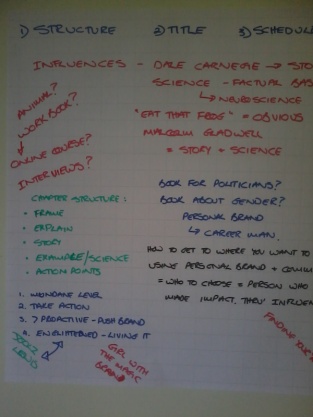 1) STRUCTURE 2) TITLE 3) SCHEDUL
INFLUENCES - DALE CARNEGIE → STO
SCIENCE - FACTUAL BAS
↳ NEUROSCIENCE
"EAT THAT FROG" = OBVIOUS
MALCOLM GLADWELL
= STORY + SCIENCE
ANIMAL?
WORK BOOK?
ONLINE COURSE?
INTERVIEWS?
BOOK FOR POLITICIANS?
BOOK ABOUT GENDER?
PERSONAL BRAND
↳ CAREER MAN.
CHAPTER STRUCTURE:
• FRAME
• EXPLAIN
• STORY
• EXAMPLE/SCIENCE
• ACTION POINTS
HOW TO GET TO WHERE YOU WANT TO
USING PERSONAL BRAND + COMMU
= WHO TO CHOOSE = PERSON WHO
IMAGE IMPACT. THRU INFLUEN
1. MUNDANE LEVEL
2. TAKE ACTION
3. > PROACTIVE - PUSH BRAND
4. ENLIGHTENED - LIVING IT
GIRL WITH
THE MAGIC
BRAND